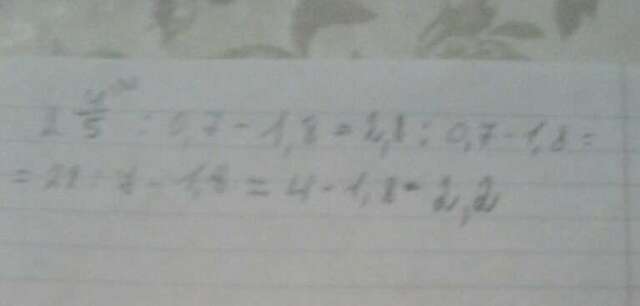 2 4/5 : 0,7 - 1,8 = 2,8 : 0,7 - 1,8 =
= 28 : 7 - 1,8 = 4 - 1,8 = 2,2